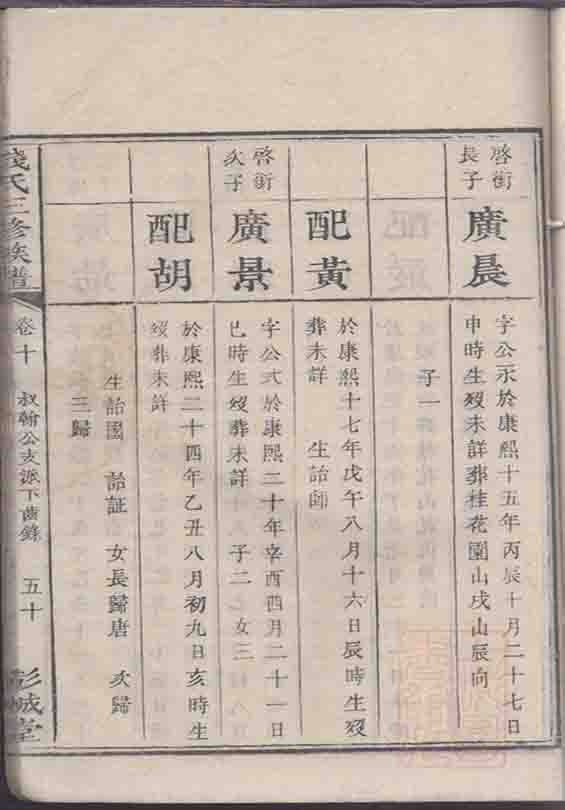 啓衛
長子
廣晨
字公示於康熙十五年丙辰十月二十七日
申時生歿未詳葬桂花園山戌山辰向
子一
配黃
於康熙十七年戊午八月十六日辰時生歿
葬未詳 生詒師
啓衛
次子
廣景
字公式於康熙二十年辛酉四月二十一日
巳時生歿葬未詳 子二 女三
配胡
於康熙二十四年乙丑八月初九日亥時生
歿葬未詳
生詒國 詒証 女長歸唐 次歸
三歸
錢氏三修族譜
卷十
叔翰公支派下齒錄
五十
彭城堂